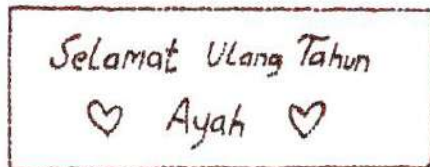 Selamat Ulang Tahun
♡ Ayah ♡